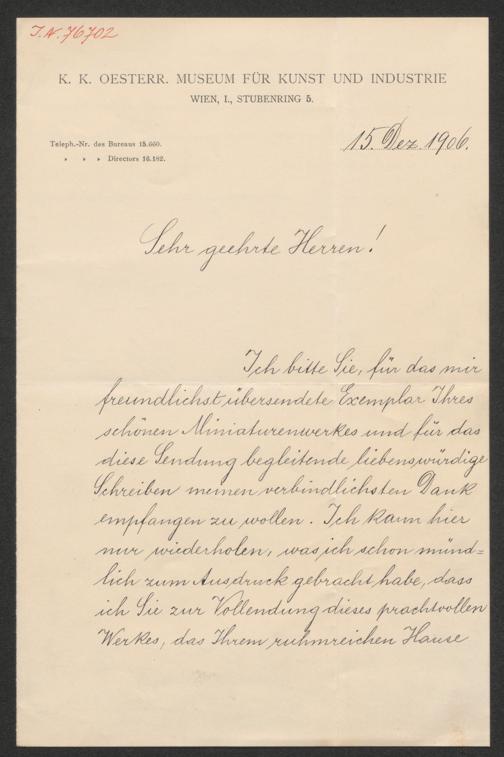 I.N. 76702
K. K. OESTERR. MUSEUM FÜR KUNST UND INDUSTRIE
WIEN, I., STUBENRING 5.
Teleph.-Nr. des Bureaus 15.660.
» » » Directors 16.182.
15. Dez. 1906.
Sehr geehrte Herren!
Ich bitte Sie, für das mir
freundlichst übersendete Exemplar Ihres
schönen Miniaturenwerkes und für das
diese Sendung begleitende liebenswürdige
Schreiben meinen verbindlichsten Dank
empfangen zu wollen. Ich kann hier
nur wiederholen, was ich schon münd=
lich zum Ausdruck gebracht habe, dass
ich Sie zur Vollendung dieses prachtvollen
Werkes, das Ihrem ruhmreichen Hause